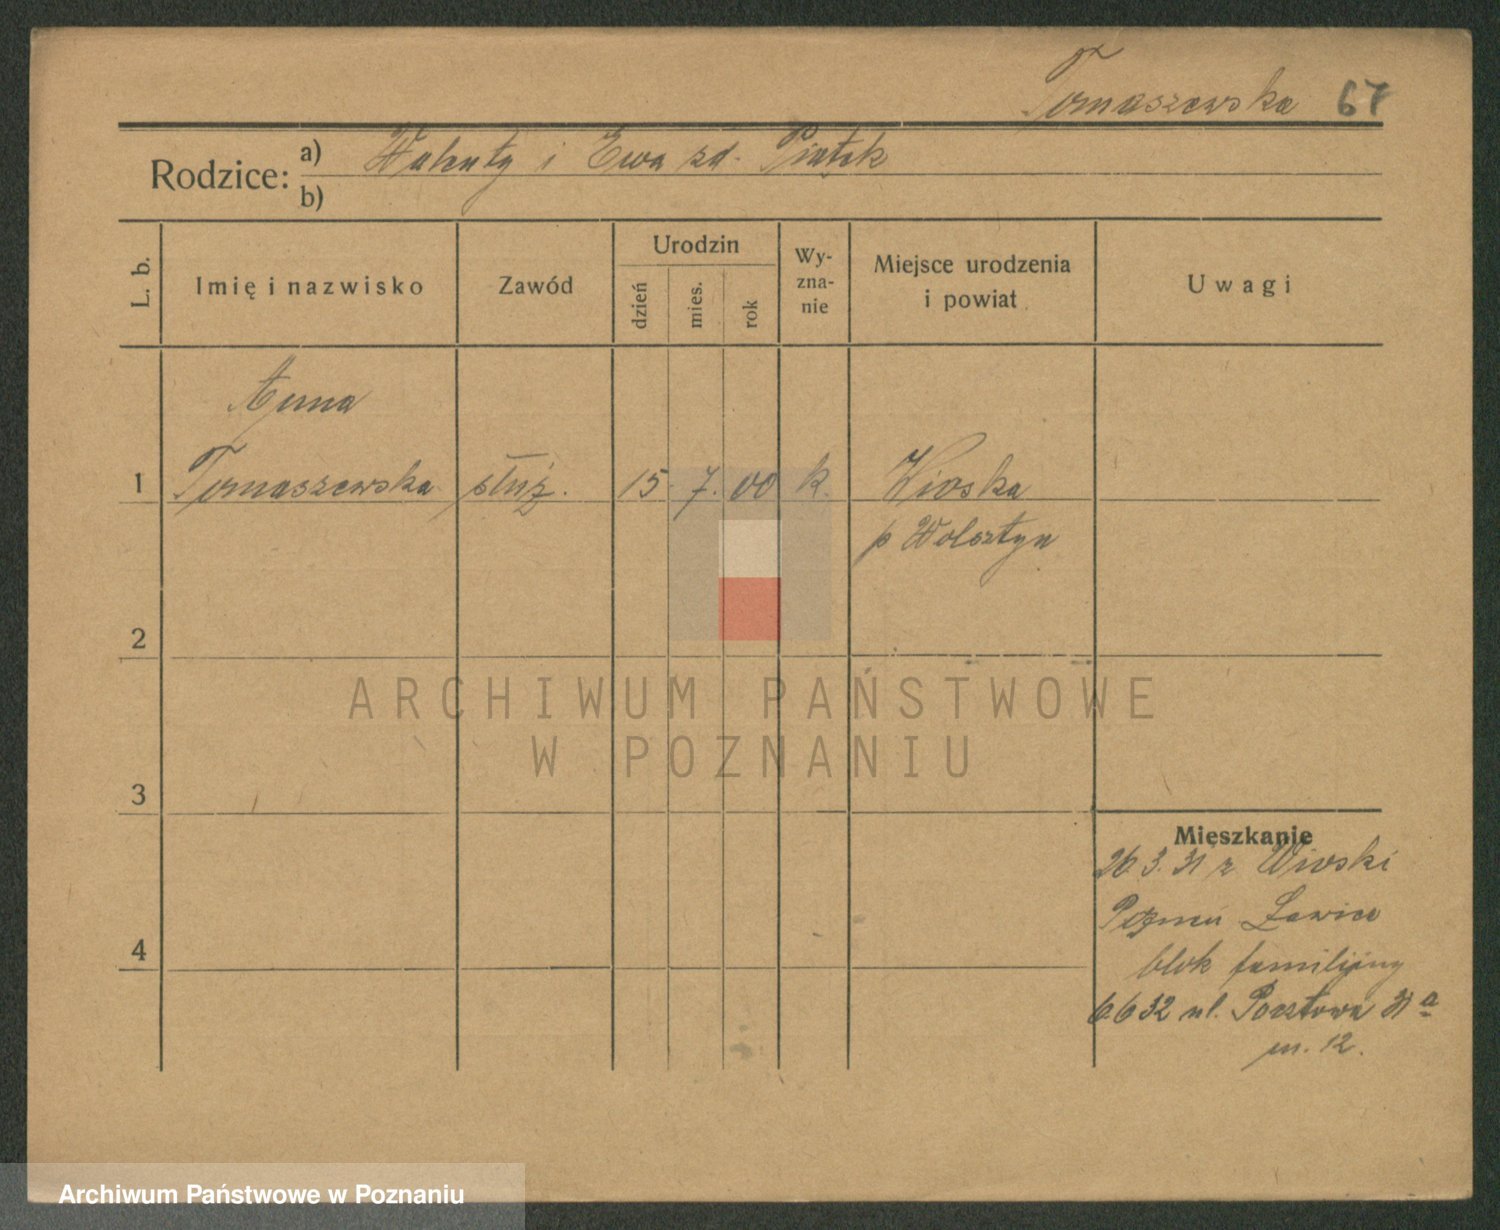 Tomaszewska 67
Rodzice: a) Walenty i Ewa zd. Piątek
b)
L. b.
Imię i nazwisko
Zawód
Urodzin
dzień
mies.
rok
Wy-
zna-
nie
Miejsce urodzenia
i powiat
Uwagi
Anna
1 Tomaszewska służ. 15. 7. 00 k. Wioska
p Wolsztyn
2
ARCHIWUM PAŃSTWOWE
W POZNANIU
3
Mieszkanie
26.3.31 z Wioski
Poznań Ławica
blok familijny
4
6.6 32 ul. Pocztowa 31a
m. 12.
Archiwum Państwowe w Poznaniu